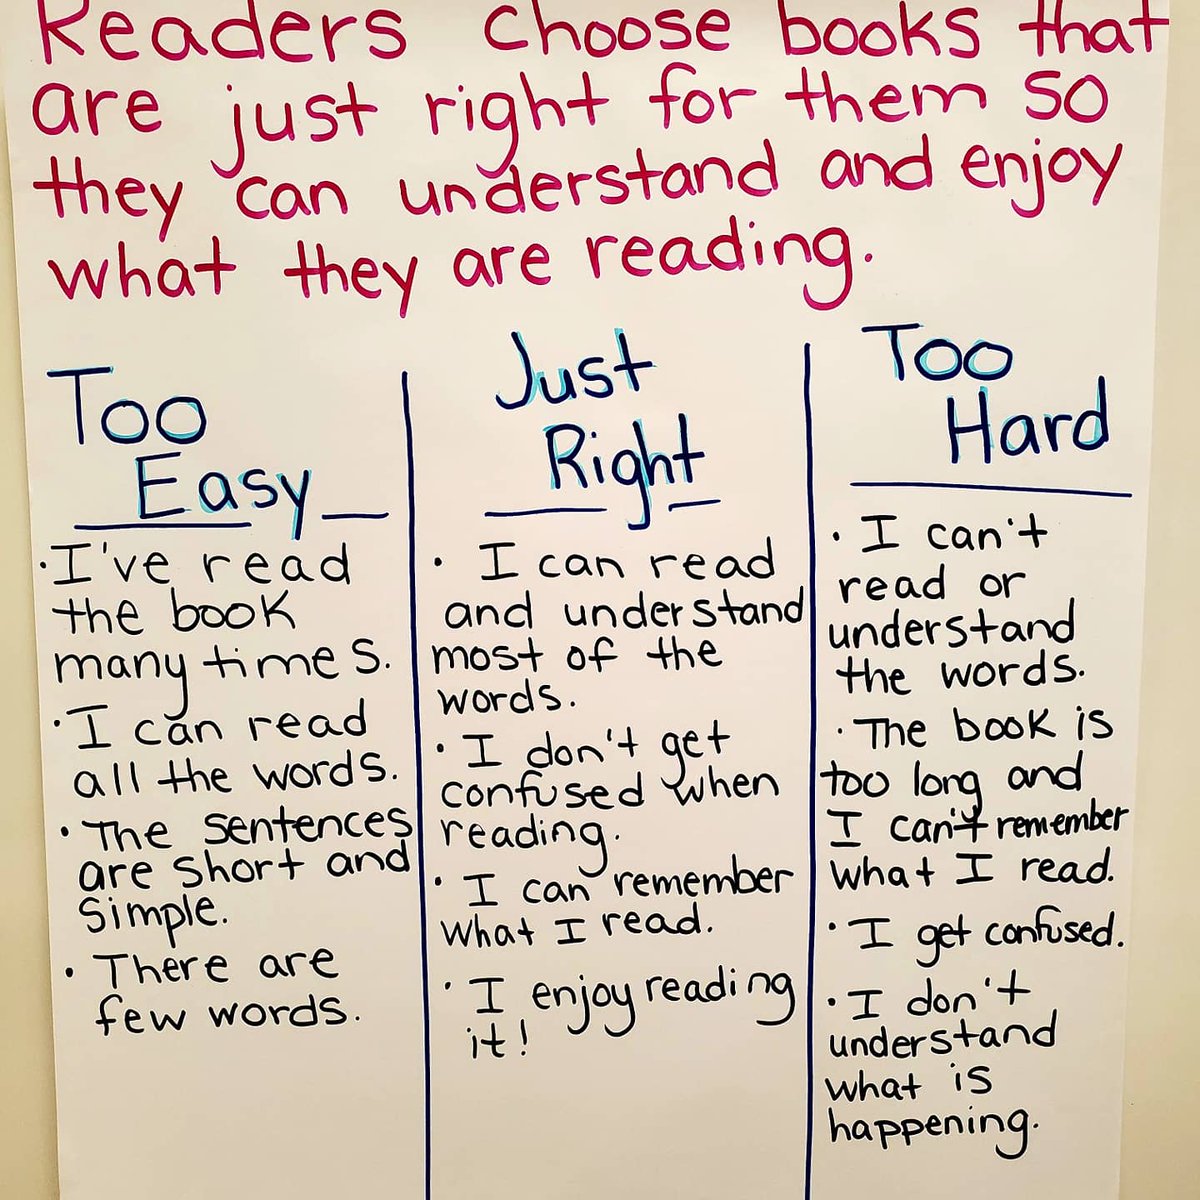 Readers choose books that
are just right for them so
they can understand and enjoy
what they are reading.
Too
Easy
·I've read
the book
many times.
·I can read
all the words.
·The sentences
are short and
simple.
·There are
few words.
Just
Right
·I can read
and understand
most of the
words.
·I don't get
confused when
reading.
·I can remember
what I read.
·I enjoy reading
it!
Too
Hard
·I can't
read or
understand
the words.
·The book is
too long and
I can't remember
what I read.
·I get confused.
·I don't
understand
what is
happening.